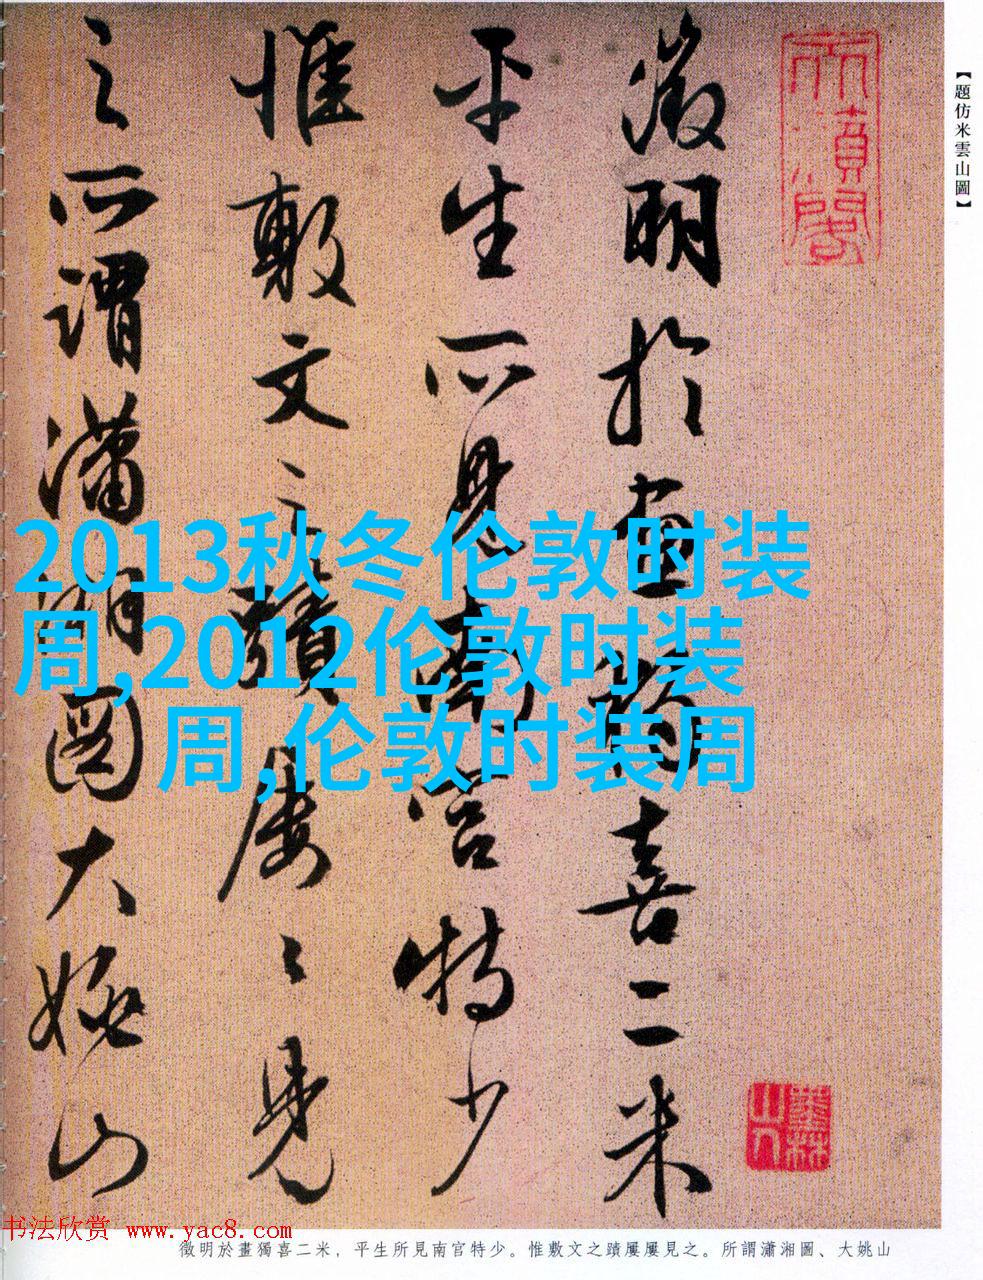 【題仿米雲山圖】
徵明於畫獨喜二米
平生所見南宮特少
惟敷文之蹟屢屢見
之所謂瀟湘圖大姚山
2013秋冬伦敦时装
周,2012伦敦时装
周,伦敦时装周
墨林
山人
书法欣赏 www.yac8.com
徵明於畫獨喜二米，平生所見南官特少。惟敷文之蹟屢屢見之。所謂瀟湘圖、大姚山